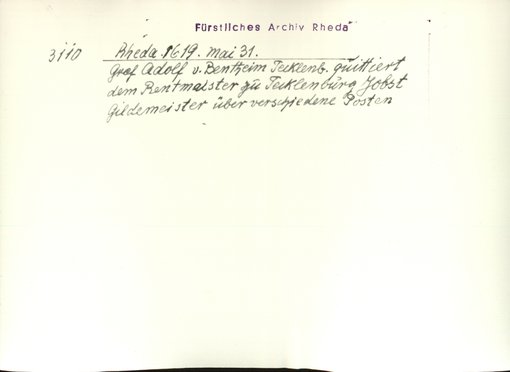 Fürstliches Archiv Rheda
3110 Rheda 1619. Mai 31.
Graf Adolf v. Bentheim Tecklenb. quittiert
dem Rentmeister zu Tecklenburg Jobst
Gildemeister über verschiedene Posten